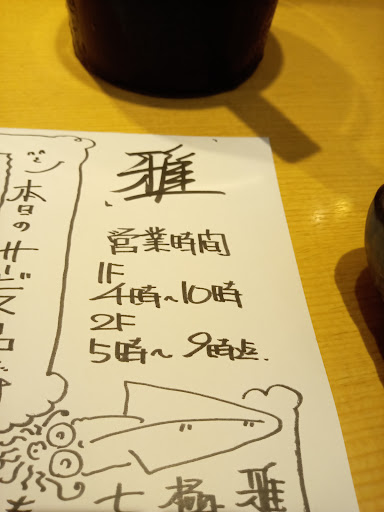 雅
営業時間
1F
4時～10時
2F
5時～9時
本日の
サービス
雅
極
七